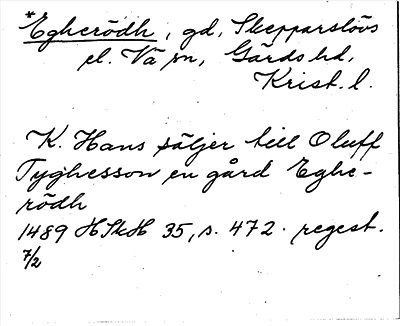 *Egherödh, gd, Skepparslövs
el. Vä sn, Gärds hd,
Krist. l.
K. Hans säljer till Oluff
Tyghesson en gård Eghe-
rödh
1489 HSkH 35, s. 472. regest.
7/2